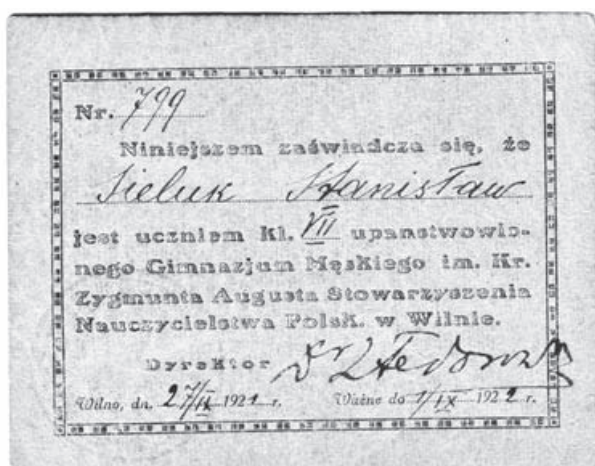 Nr. 799
Niniejszem zaświadcza się, że
Sieluk Stanisław
jest uczniem kl. VII upaństwowio-
nego Gimnazjum Męskiego im. Kr.
Zygmunta Augusta Stowarzyszenia
Nauczycielstwa Polsk. w Wilnie.
Dyrektor Dr
Wilno, dn. 27/IX 1921 r. Ważne do 1/IX 1922 r.